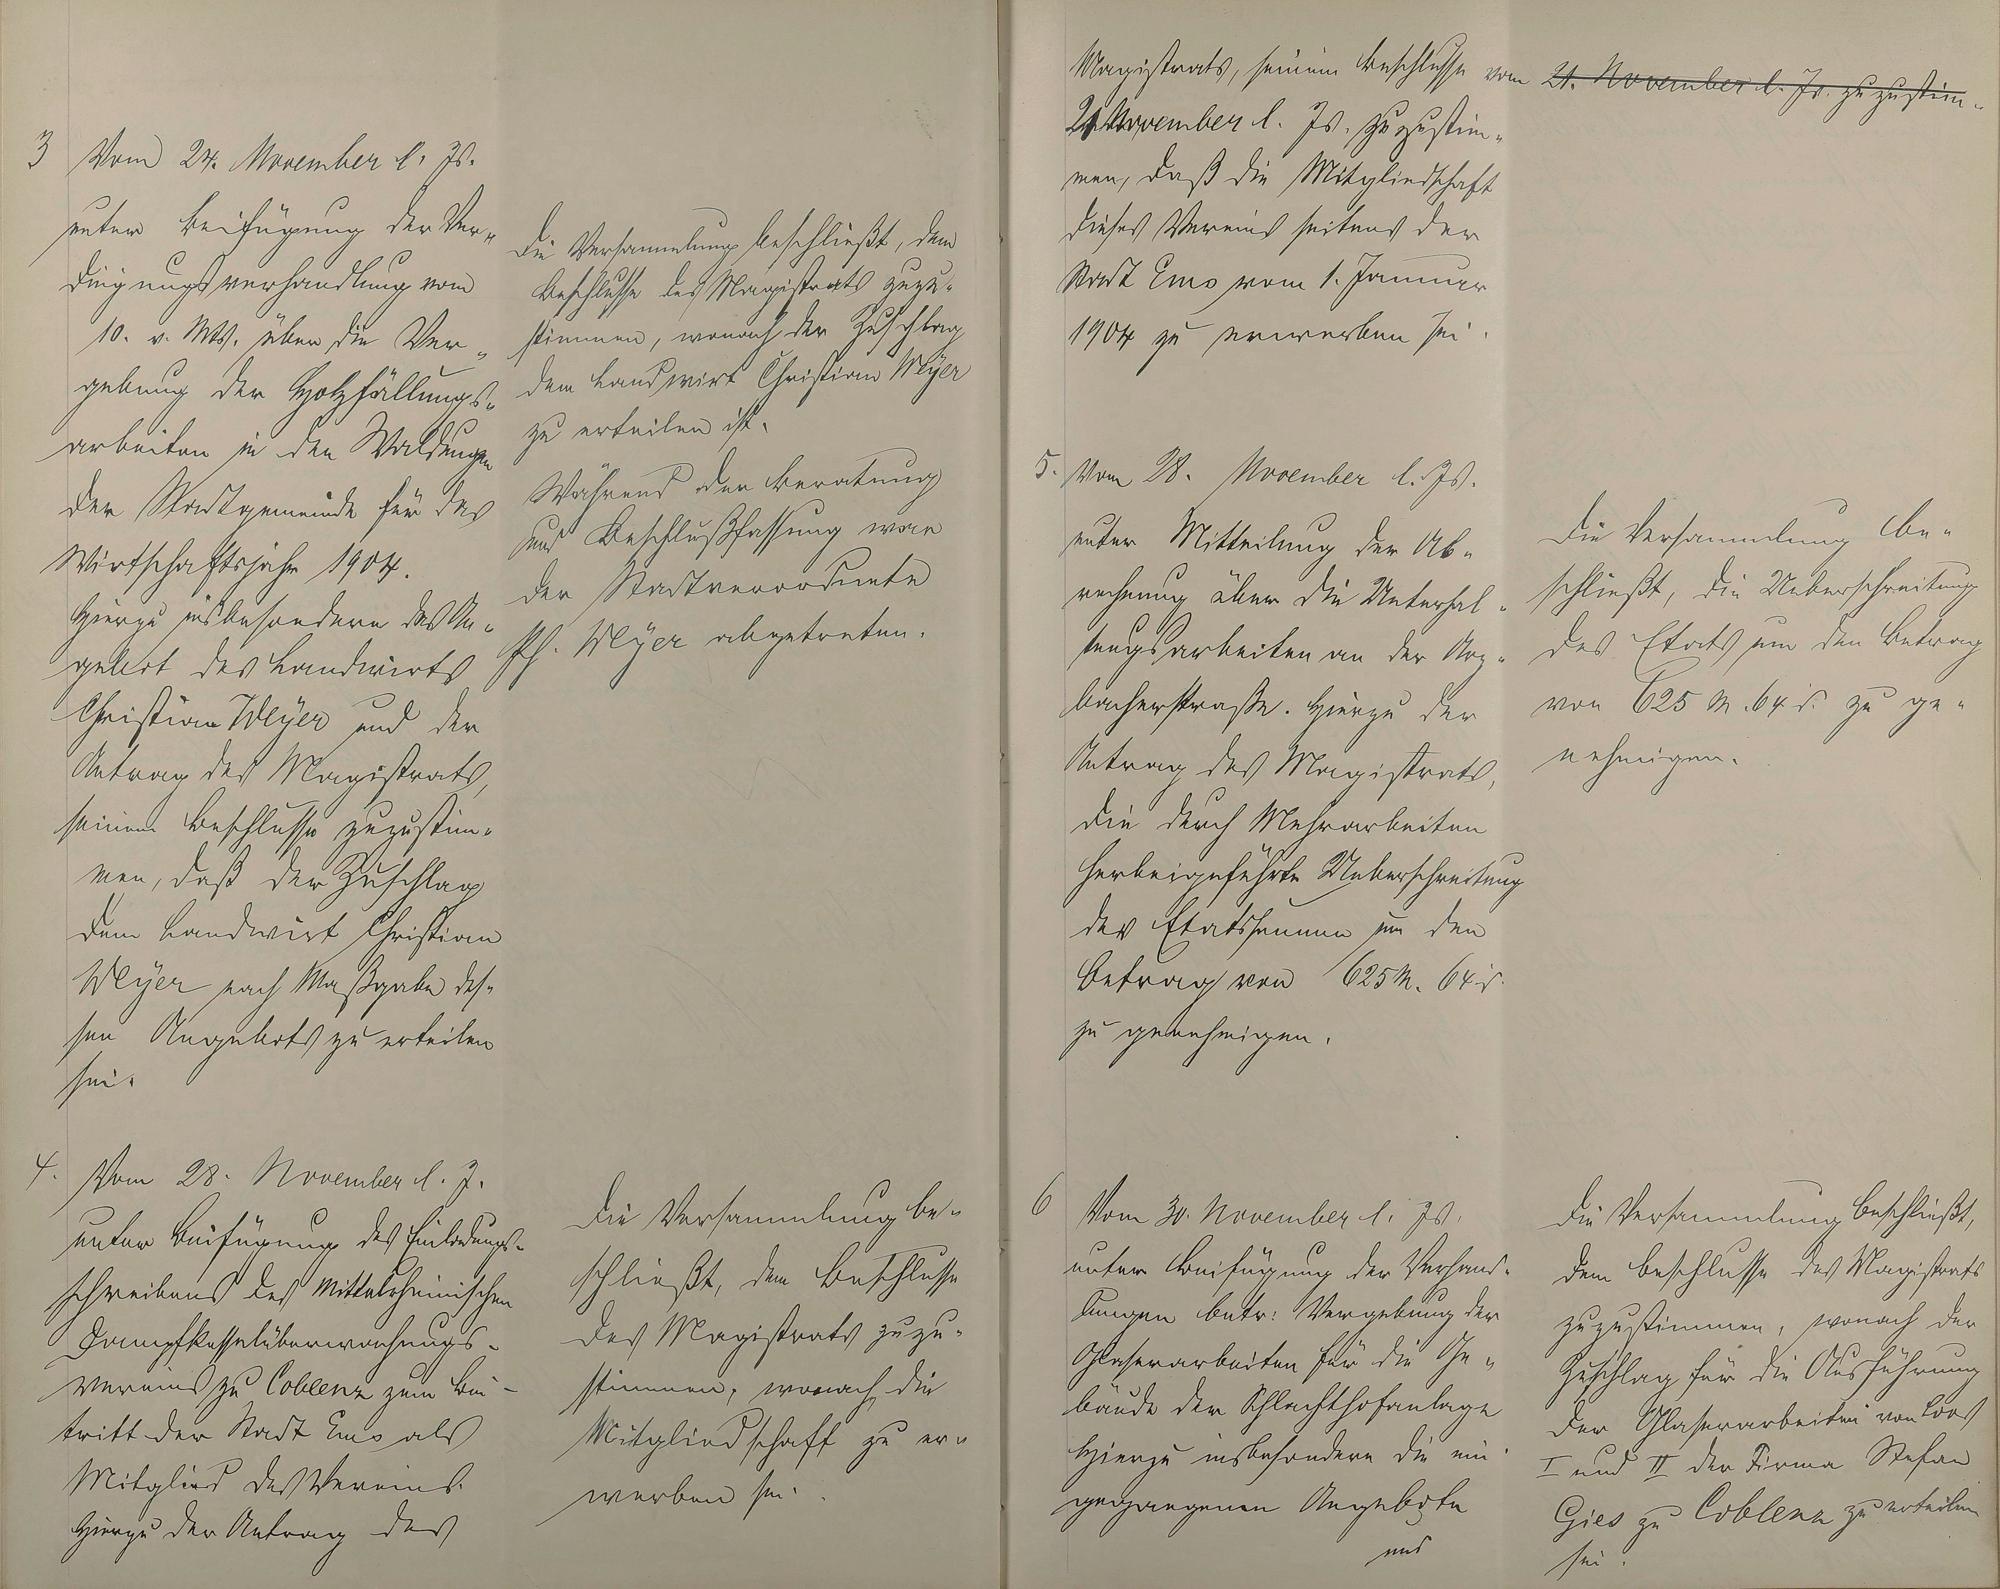 3 Vom 24. November l. Js.
unter Beifügung der Ver-
dingungsverhandlung vom
10. v. Mts. über die Ver-
gebung der Holzfällungs-
arbeiten in den Waldungen
der Stadtgemeinde für das
Wirtschaftsjahr 1904.
Hierzu insbesondere das An-
gebot des Landwirts
Christian Meyer und der
Antrag des Magistrats,
seinem Beschlusse zuzustim-
men, daß der Zuschlag
dem Landwirt Christian
Meyer nach Maßgabe des-
sen Angebots zu erteilen
sei.
Die Versammlung beschließt, dem
Beschlusse des Magistrats zuzu-
stimmen, wonach der Zuschlag
dem Landwirt Christian Meyer
zu erteilen ist.
Während der Beratung
und Beschlußfassung war
der Stadtverordnete
Ph. Meyer abgetreten.
4. Vom 28. November l. J.
unter Beifügung des Einladungs-
schreibens des Mittelrheinischen
Dampfkesselüberwachungs-
vereins zu Coblenz zum Bei-
tritt der Stadt Ems als
Mitglied des Vereins.
Hierzu der Antrag des
Die Versammlung be-
schließt, dem Beschlusse
des Magistrats zuzu-
stimmen, wonach die
Mitgliedschaft zu er-
werben sei.
Magistrats, seinem Beschlusse vom 21. November l. Js. zuzustim-
21 November l. Js. zuzustim-
men, daß die Mitgliedschaft
dieses Vereins seitens der
Stadt Ems vom 1. Januar
1904 zu erwerben sei.
5. Vom 28. November l. Js.
unter Mitteilung der Ab-
rechnung über die Unterhal-
tungsarbeiten an der Arz-
bacherstraße. Hierzu der
Antrag des Magistrats,
die durch Mehrarbeiten
herbeigeführte Ueberschreitung
der Etatssumme um den
Betrag von 625 M. 64 d.
zu genehmigen.
Die Versammlung be-
schließt, die Ueberschreitung
des Etats um den Betrag
von 625 M. 64 d. zu ge-
nehmigen.
6 Vom 30. November l. Js.
unter Beifügung der Verhand-
lungen betr: Vergebung der
Glaserarbeiten für die Ge-
bäude der Schlachthofanlage
Hierzu insbesondere die ein-
gegangenen Angebote
und
Die Versammlung beschließt,
dem Beschlusse des Magistrats
zuzustimmen, wonach der
Zuschlag für die Ausführung
der Glaserarbeiten von Loos
I und II der Firma Stefan
Gies zu Coblenz zu erteilen
sei.